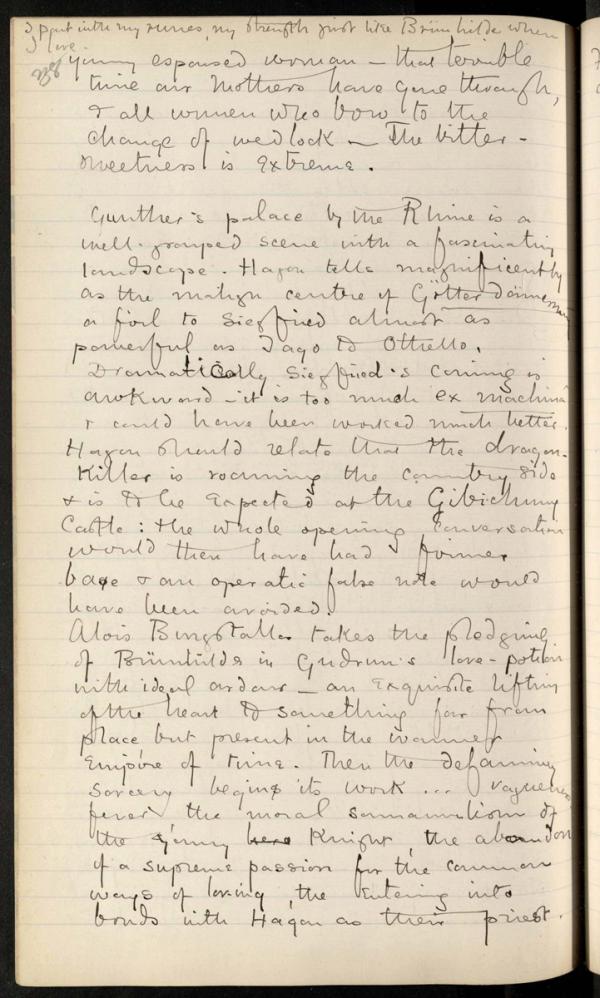 I part with my runes, my strength just like Brünnhilde when
I love.
young espoused woman – that terrible
time our Mothers have gone through,
& all women who bow to the
change of wedlock – The bitter-
sweetness is extreme.
Gunther's palace by the Rhine is a
well-grouped scene with a fascinating
landscape. Hagen tells magnificently
as the malign centre of Götterdämmerung
a foil to Siegfried almost as
powerful as Iago to Othello.
Dramatically Siegfried's coming is
awkward – it is too much ex machina
& could have been worked much better.
Hagen should relate that the dragon-
killer is roaming the country side
& is to be expected at the Gibichung
Castle: the whole opening conversation
would then have had a firmer
base & an operatic false note would
have been avoided.
Alois Burgstaller takes the pledging
of Brünnhilde in Gudrun's love-potion
with ideal ardour – an exquisite lifting
of the heart to something far from
place but present in the warmer
Empire of time. Then the defaming
sorcery begins its work ... vagueness
fever, the moral somnambulism of
the young Knight, the abandon
of a supreme passion for the common
ways of loving, the entering into
bonds with Hagen as their priest.